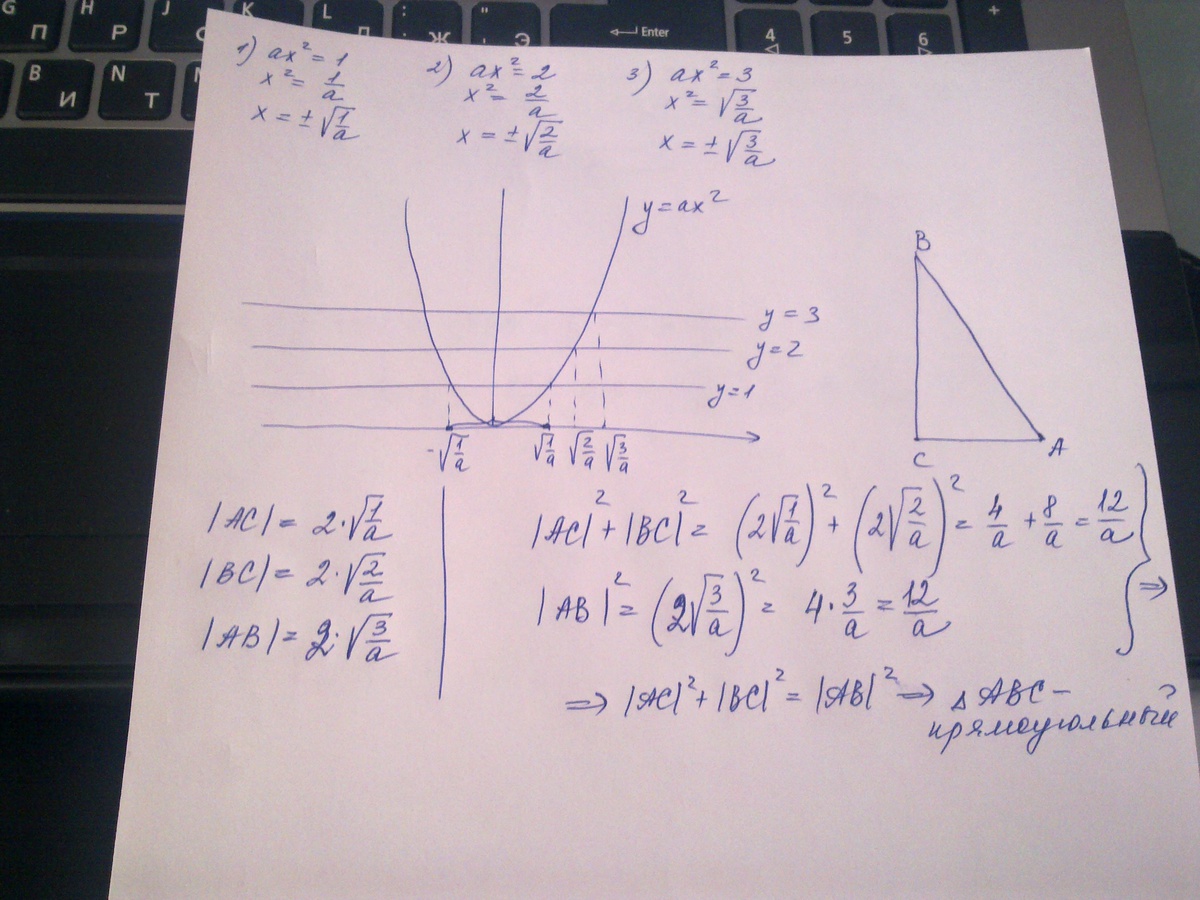 G П H Р J L : Ж " Э Enter 4 5 6 +
B И N Т
1) ax² = 1
x² = 1/a
x = ±√(1/a)
2) ax² = 2
x² = 2/a
x = ±√(2/a)
3) ax² = 3
x² = √(3/a)
x = ±√(3/a)
y = ax²
y = 3
y = 2
y = 1
-√(1/a) √(1/a) √(2/a) √(3/a)
B
C A
|AC| = 2·√(1/a)
|BC| = 2·√(2/a)
|AB| = 2·√(3/a)
|AC|² + |BC|² = (2√(1/a))² + (2√(2/a))² = 4/a + 8/a = 12/a
|AB|² = (2√(3/a))² = 4·3/a = 12/a } ⇒
⇒ |AC|² + |BC|² = |AB|² ⇒ △ABC –
прямоугольный